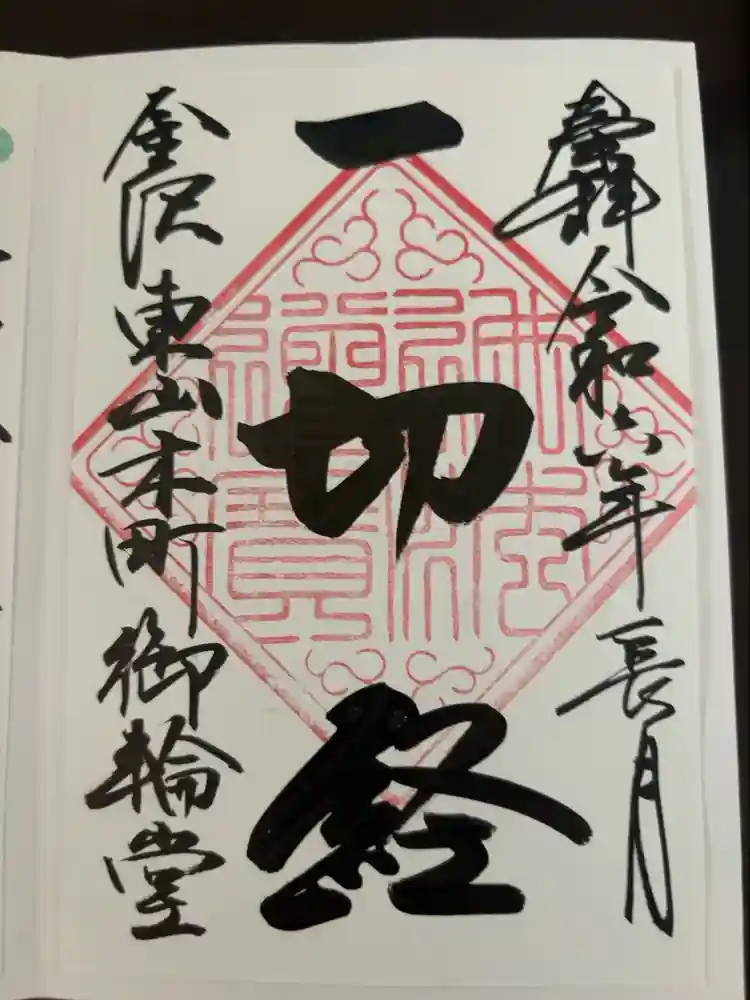 奉拝 令和六年長月
一切経
金沢東山木町 御輪堂
佛法僧寶